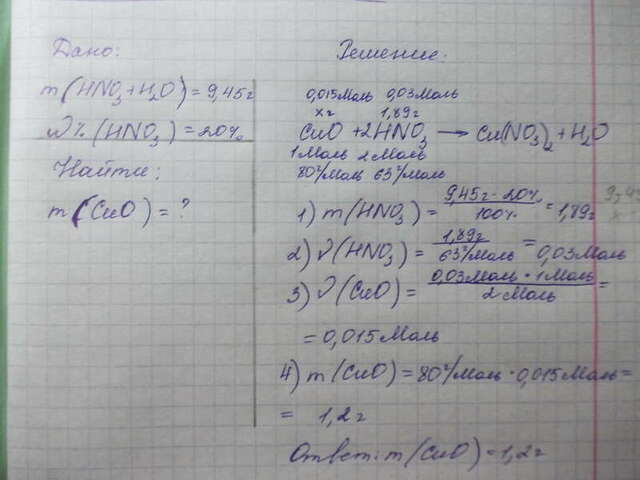 Дано:
m(HNO₃+H₂O)=9,45г
ω%(HNO₃)=20%
Найти:
m(CuO)=?
Решение:
0,015моль 0,03моль
хг 1,89г
CuO+2HNO₃→Cu(NO₃)₂+H₂O
1моль 2моль
80г/моль 63г/моль
1) m(HNO₃)=9,45г·20%/100%=1,89г
2) ν(HNO₃)=1,89г/63г/моль=0,03моль
3) ν(CuO)=0,03моль·1моль/2моль=
=0,015моль
4) m(CuO)=80г/моль·0,015моль=
= 1,2г
Ответ: m(CuO)=1,2г